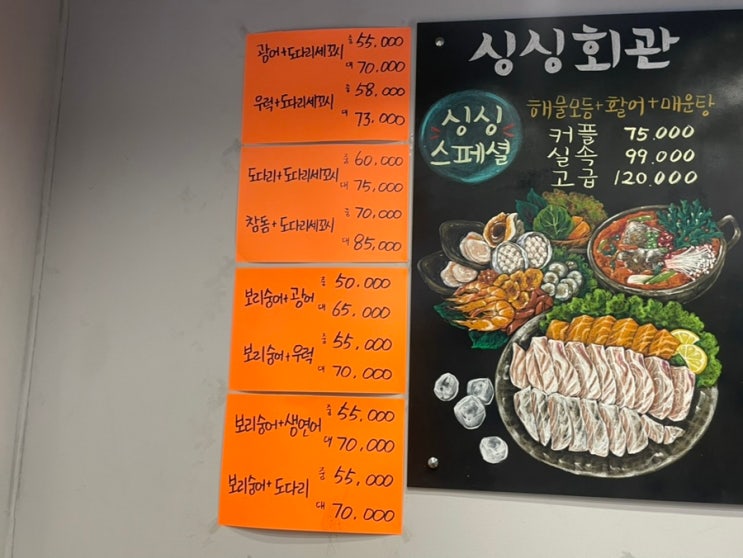 광어+도다리세꼬시 중 55,000
대 70,000
우럭+도다리세꼬시 중 58,000
대 73,000
도다리+도다리세꼬시 중 60,000
대 75,000
참돔+도다리세꼬시 중 70,000
대 85,000
보리숭어+광어 중 50,000
대 65,000
보리숭어+우럭 중 55,000
대 70,000
보리숭어+생연어 중 55,000
대 70,000
보리숭어+도다리 중 55,000
대 70,000
싱싱회관
싱싱
스페셜
해물모듬+활어+매운탕
커플 75.000
실속 99.000
고급 120.000